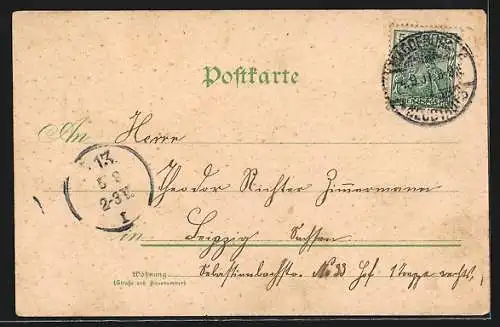 Postkarte
MAGDEBURG
NEUSTADT
An Herrn
13.
5 9
2-3 N
I
Theodor Richter Zimmermann
in Leipzig Sachsen
Wohnung Sebastianbachstr. No 33 Hof 1 Treppe rechts
(Straße und Hausnummer)